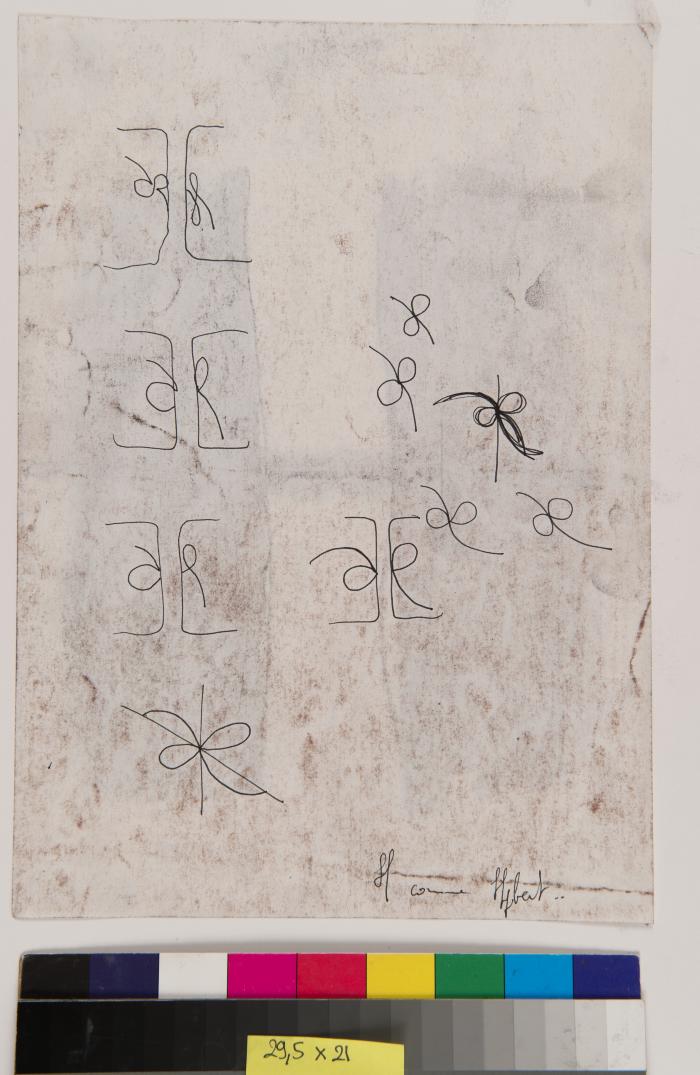 H comme
29,5 x 21